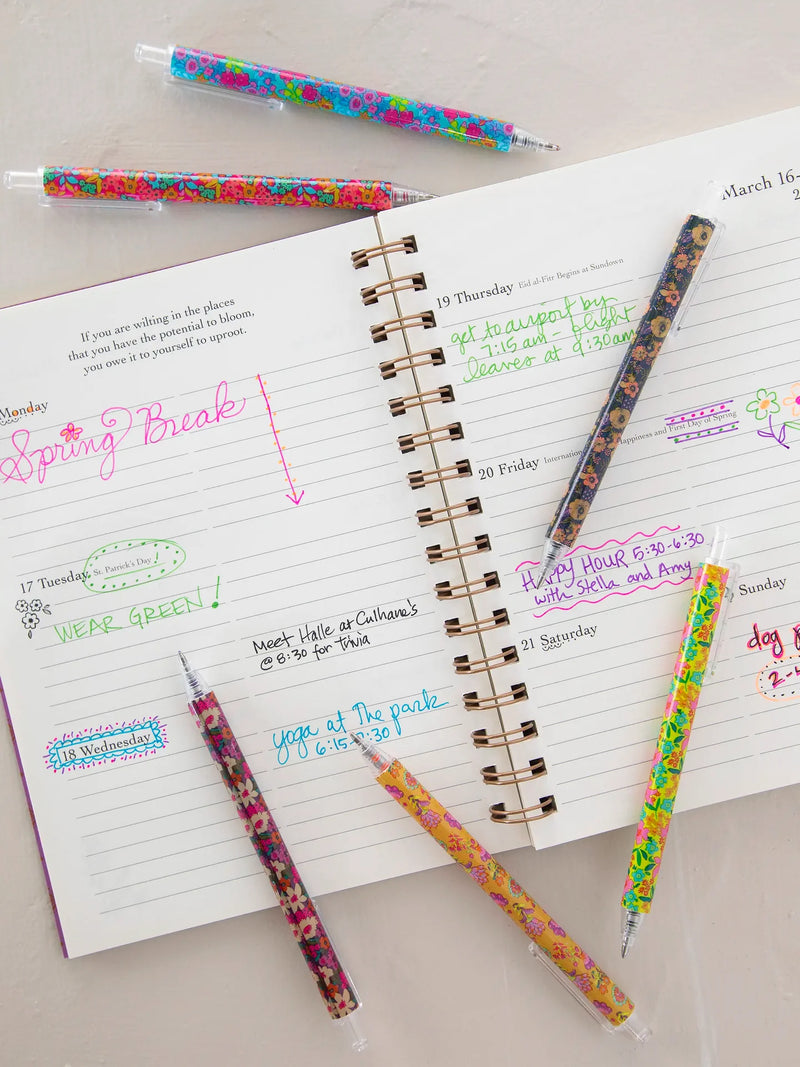 If you are wilting in the places
that you have the potential to bloom,
you owe it to yourself to uproot.
Monday
Spring Break
17 Tuesday St. Patrick's Day!
WEAR GREEN!
Meet Halle at Culhane's
@ 8:30 for trivia
18 Wednesday
yoga at The park
6:15-7:30
March 16-
19 Thursday Eid al-Fitr Begins at Sundown
get to airport by
7:15 am - flight
leaves at 9:30am
20 Friday Happiness and First Day of Spring
HAPPY HOUR 5:30-6:30
with Stella and Amy
21 Saturday
Sunday
dog
2-